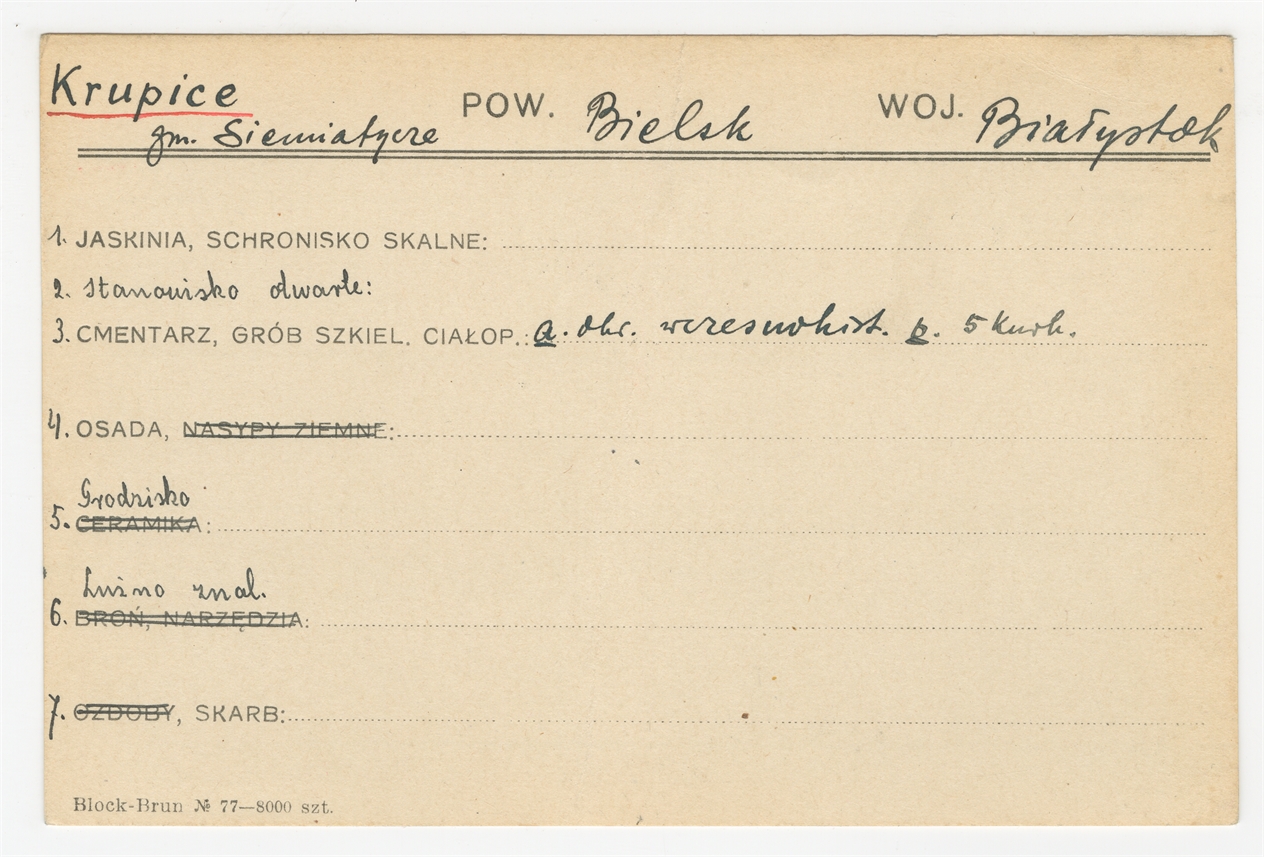 Krupice POW. Bielsk WOJ. Białystok
gm. Siemiatycze
1. JASKINIA, SCHRONISKO SKALNE:
2. Stanowisko otwarte:
3. CMENTARZ, GRÓB SZKIEL. CIAŁOP.: a. okr. wczesnohist. b. 5 kurh.
4. OSADA, NASYPY ZIEMNE:
Grodzisko
5. CERAMIKA:
Luźno znal.
6. BROŃ, NARZĘDZIA:
7. OZDOBY, SKARB:
Block-Brun № 77—8000 szt.